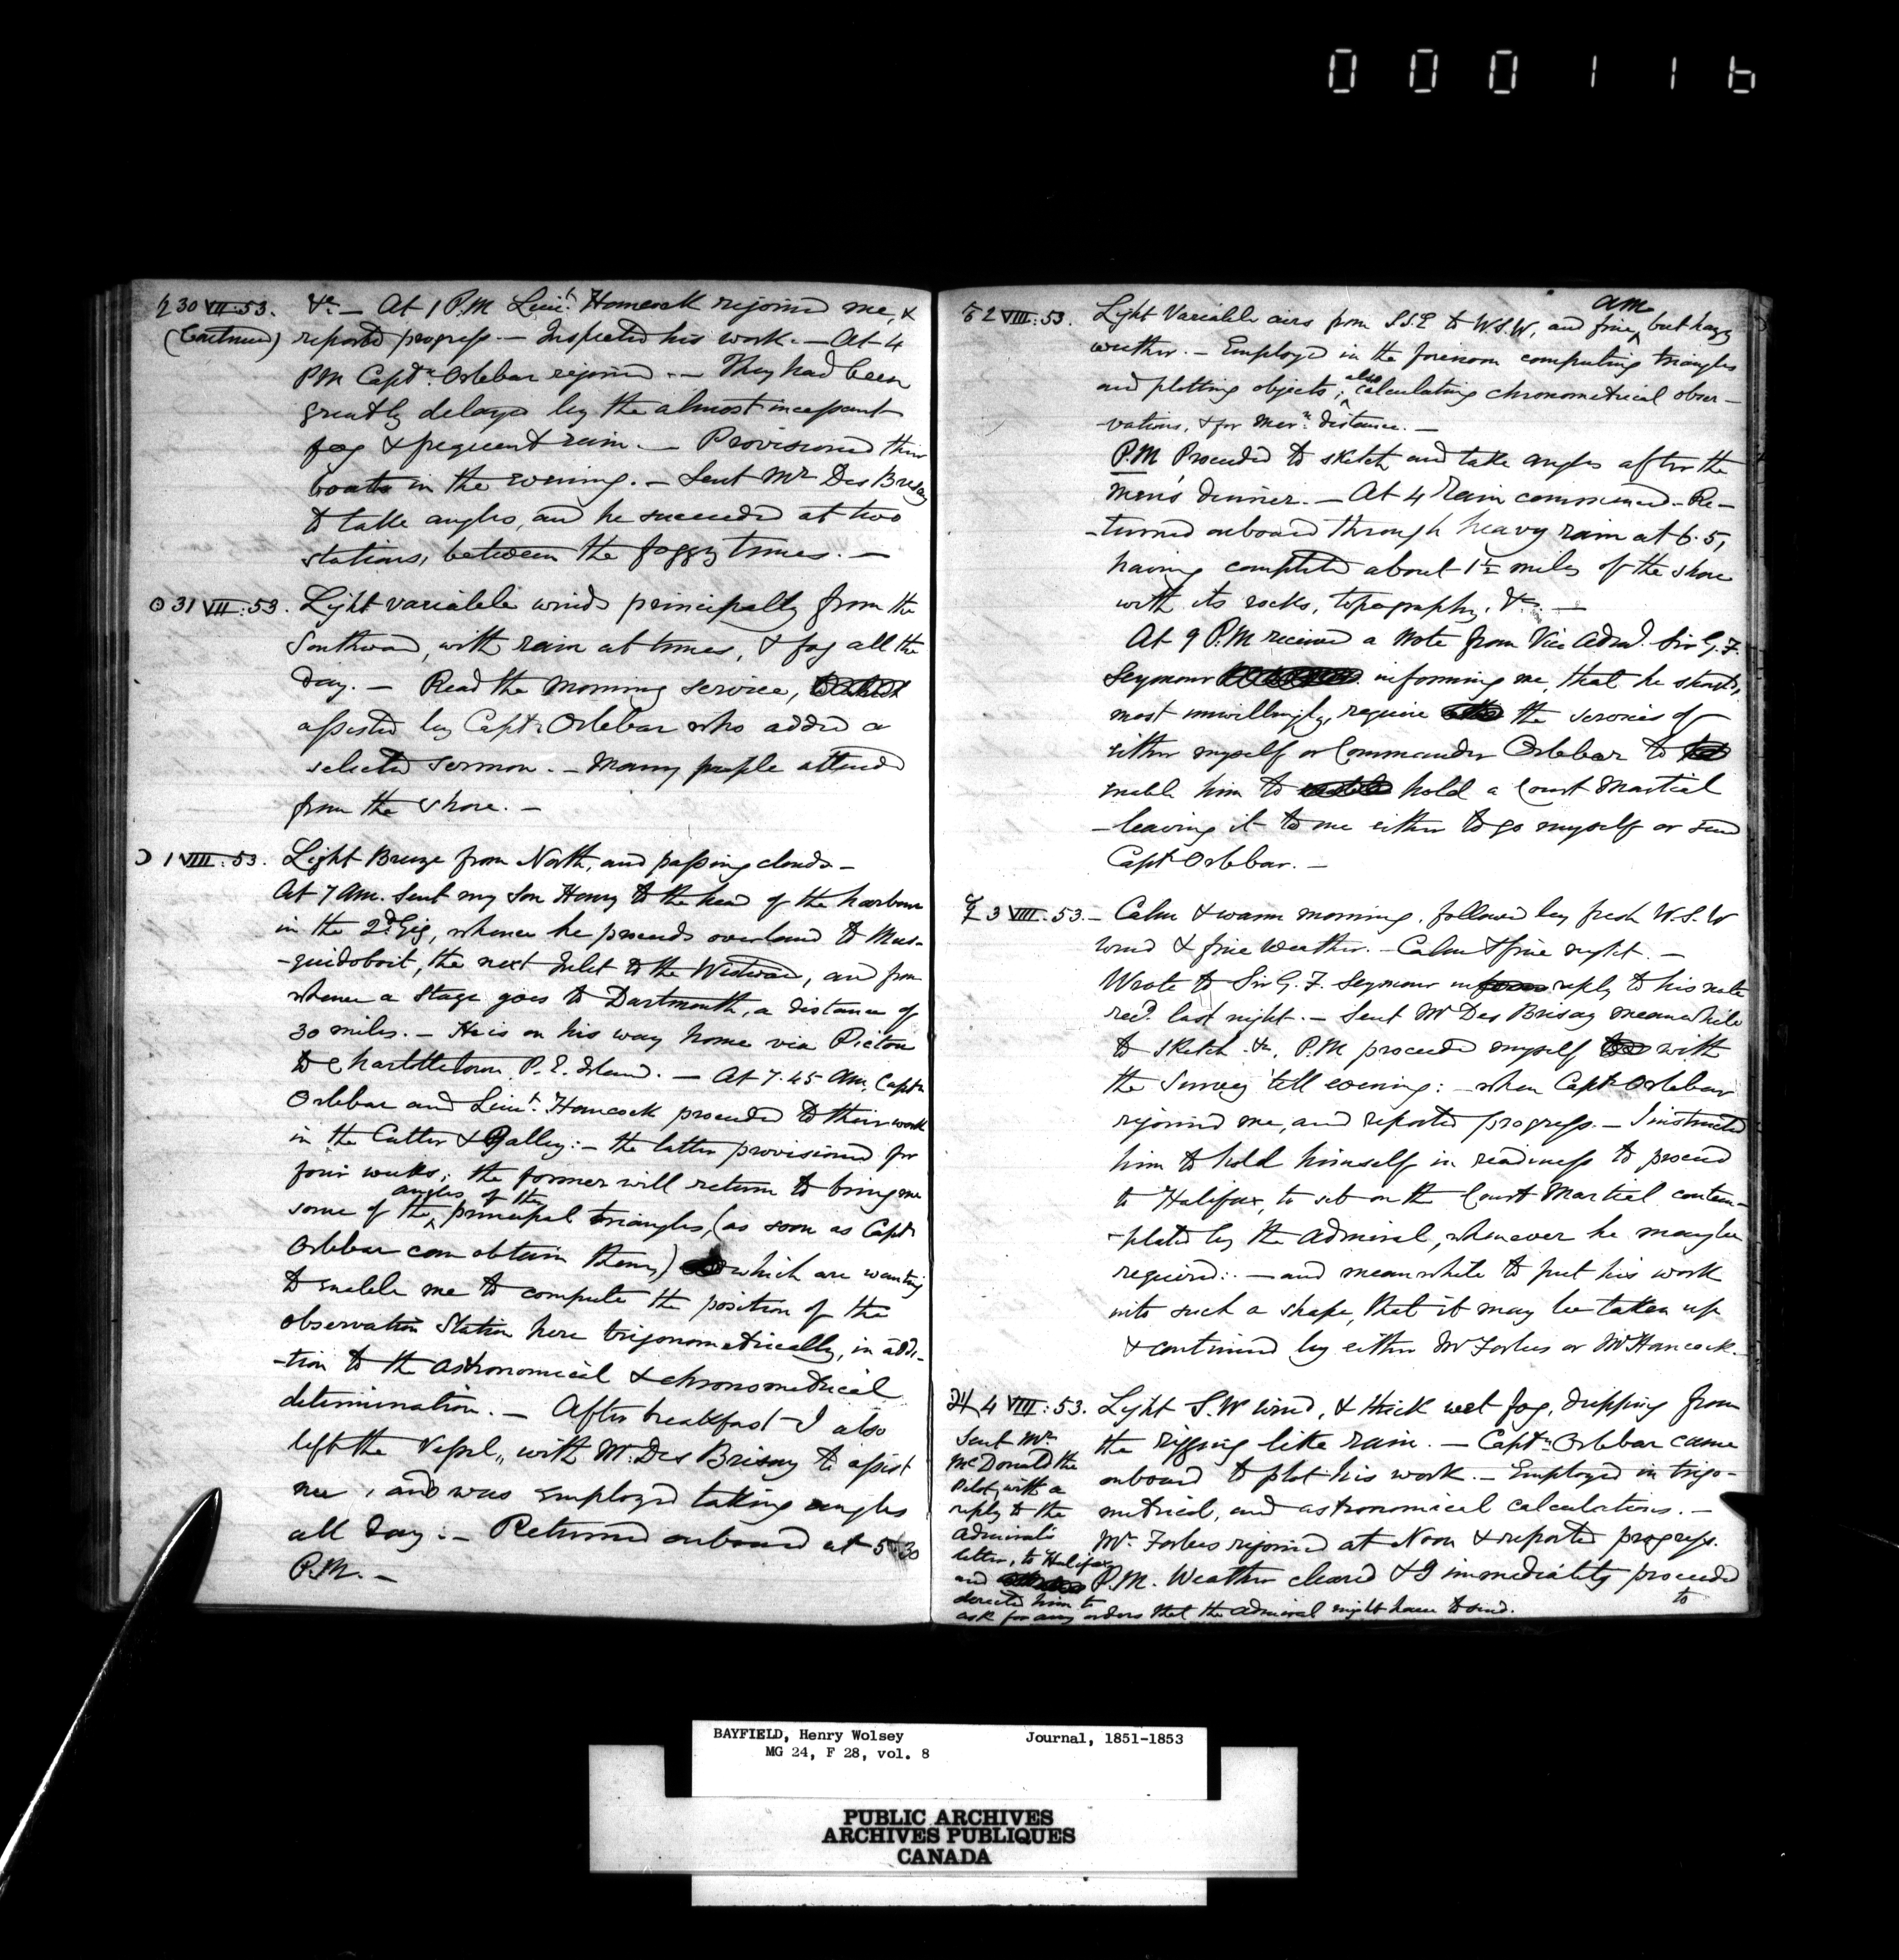 000116
♄ 30 VII:53. &c. — At 1 P.M Lieut. Hancock rejoined me, &
(Continued) reported progress. — Inspected his work. — At 4
PM Captn. Orlebar rejoined. — They had been
greatly delayed by the almost incessant
fog & frequent rain. — Provisioned their
boats in the evening. — Sent Mr Des Brisay
to take angles, and he succeeded at two
stations, between the foggy times. —
☉ 31 VII:53. Light variable winds principally from the
Southward, with rain at times, & fog all the
day. — Read the Morning service,
assisted by Captn Orlebar who added a
selected sermon. — Many people attended
from the shore. —
☽ 1 VIII:53. Light Breeze from North, and passing clouds —
At 7 AM. sent my son Henry to the head of the harbour
in the 2d Gig, whence he proceeds overland to Mus-
-quidoboit, the next Inlet to the Westward, and from
whence a Stage goes to Dartmouth, a distance of
30 miles. — He is on his way home via Pictou
to Charlottetown P.E. Island. — At 7.45 AM, Captn
Orlebar and Lieut. Hancock proceeded to their work
in the Cutter & Galley: — the latter provisioned for
four weeks; the former will return to bring me
angles of the
some of the ^ principal triangles, (as soon as Captn
Orlebar can obtain them) which are wanting
to enable me to compute the position of the
observation Station here trigonometrically, in addi-
-tion to the astronomical & chronometrical
determination. — After breakfast I also
left the Vessel, with Mr. Des Brisay to assist
me, and was employed taking angles
all day: — Returned onboard at 5.30
P.M. —
♂ 2 VIII:53. Light Variable airs from S.S.E to W.S.W, and fine ^ am but hazy
weather. — Employed in the forenoon computing triangles
and plotting objects; ^ also calculating chronometrical obser-
-vations, & for Mern. distance. —
P.M Proceeded to sketch and take angles after the
men's dinner. — At 4 Rain commenced — Re-
-turned onboard through heavy rain at 6.5,
having completed about 1½ miles of the shore
with its rocks, topography, &c. —
At 9 P.M received a Note from Vice Adml. Sir G. F.
Seymour informing me, that he should,
most unwillingly, require the services of
either myself or Commander Orlebar to
enable him to hold a Court Martial
— leaving it to me either to go myself or send
Captn Orlebar. —
☿ 3 VIII:53. — Calm & warm morning, followed by fresh W.S.W
wind & fine weather. — Calm & fine night. —
Wrote to Sir G. F. Seymour in reply to his note
recd. last night. — Sent Mr Des Brisay meanwhile
to sketch &c, P.M proceeded myself with
the Survey till evening: — when Captn Orlebar
rejoined me, and reported progress. — I instructed
him to hold himself in readiness to proceed
to Halifax, to sit on the Court Martial contem-
-plated by the Admiral, whenever he may be
required: — and meanwhile to put his work
into such a shape, that it may be taken up
& continued by either Mr Forbes or Mr Hancock. —
♃ 4 VIII:53. Light S.W wind, & thick wet fog, dripping from
the rigging like rain. — Captn. Orlebar came
onboard to plot his work. — Employed in trigo-
metrical, and astronomical calculations. —
Mr. Forbes rejoined at Noon & reported progress.
P.M. Weather cleared & I immediately proceeded
to
Sent Mr
McDonald the
Pilot, with a
reply to the
Admirals
letter, to Halifax
and
directed him to
ask for any orders that the Admiral might have to send.
BAYFIELD, Henry Wolsey Journal, 1851-1853
MG 24, F 28, vol. 8
PUBLIC ARCHIVES
ARCHIVES PUBLIQUES
CANADA